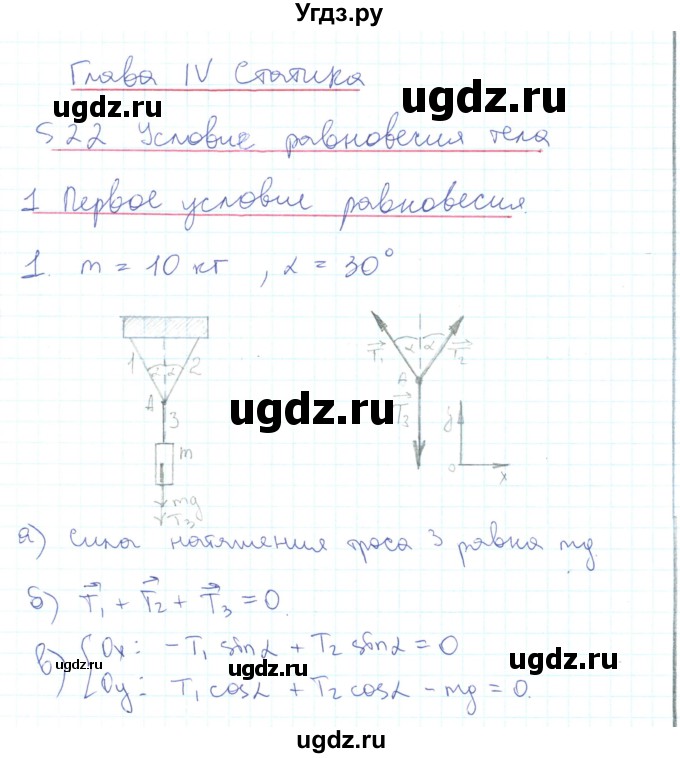 Угдз.ру
Глава IV Статика
ugdz.ru
ugdz.ru
§22 Условие равновесия тела
1 Первое условие равновесия.
1. m = 10 кг, α = 30°
1 α α 2
A
3
m
mg
T₃
α α
T₁ T₂
A
T₃
y
0 x
ugdz.ru
ugdz.ru
а) Сила натяжения троса 3 равна mg.
б) T₁ + T₂ + T₃ = 0.
в) { Ox: -T₁ sinα + T₂ sinα = 0
Oy: T₁ cosα + T₂ cosα - mg = 0.
ugdz.ru
ugdz.ru
ugdz.ru
ugdz.ru